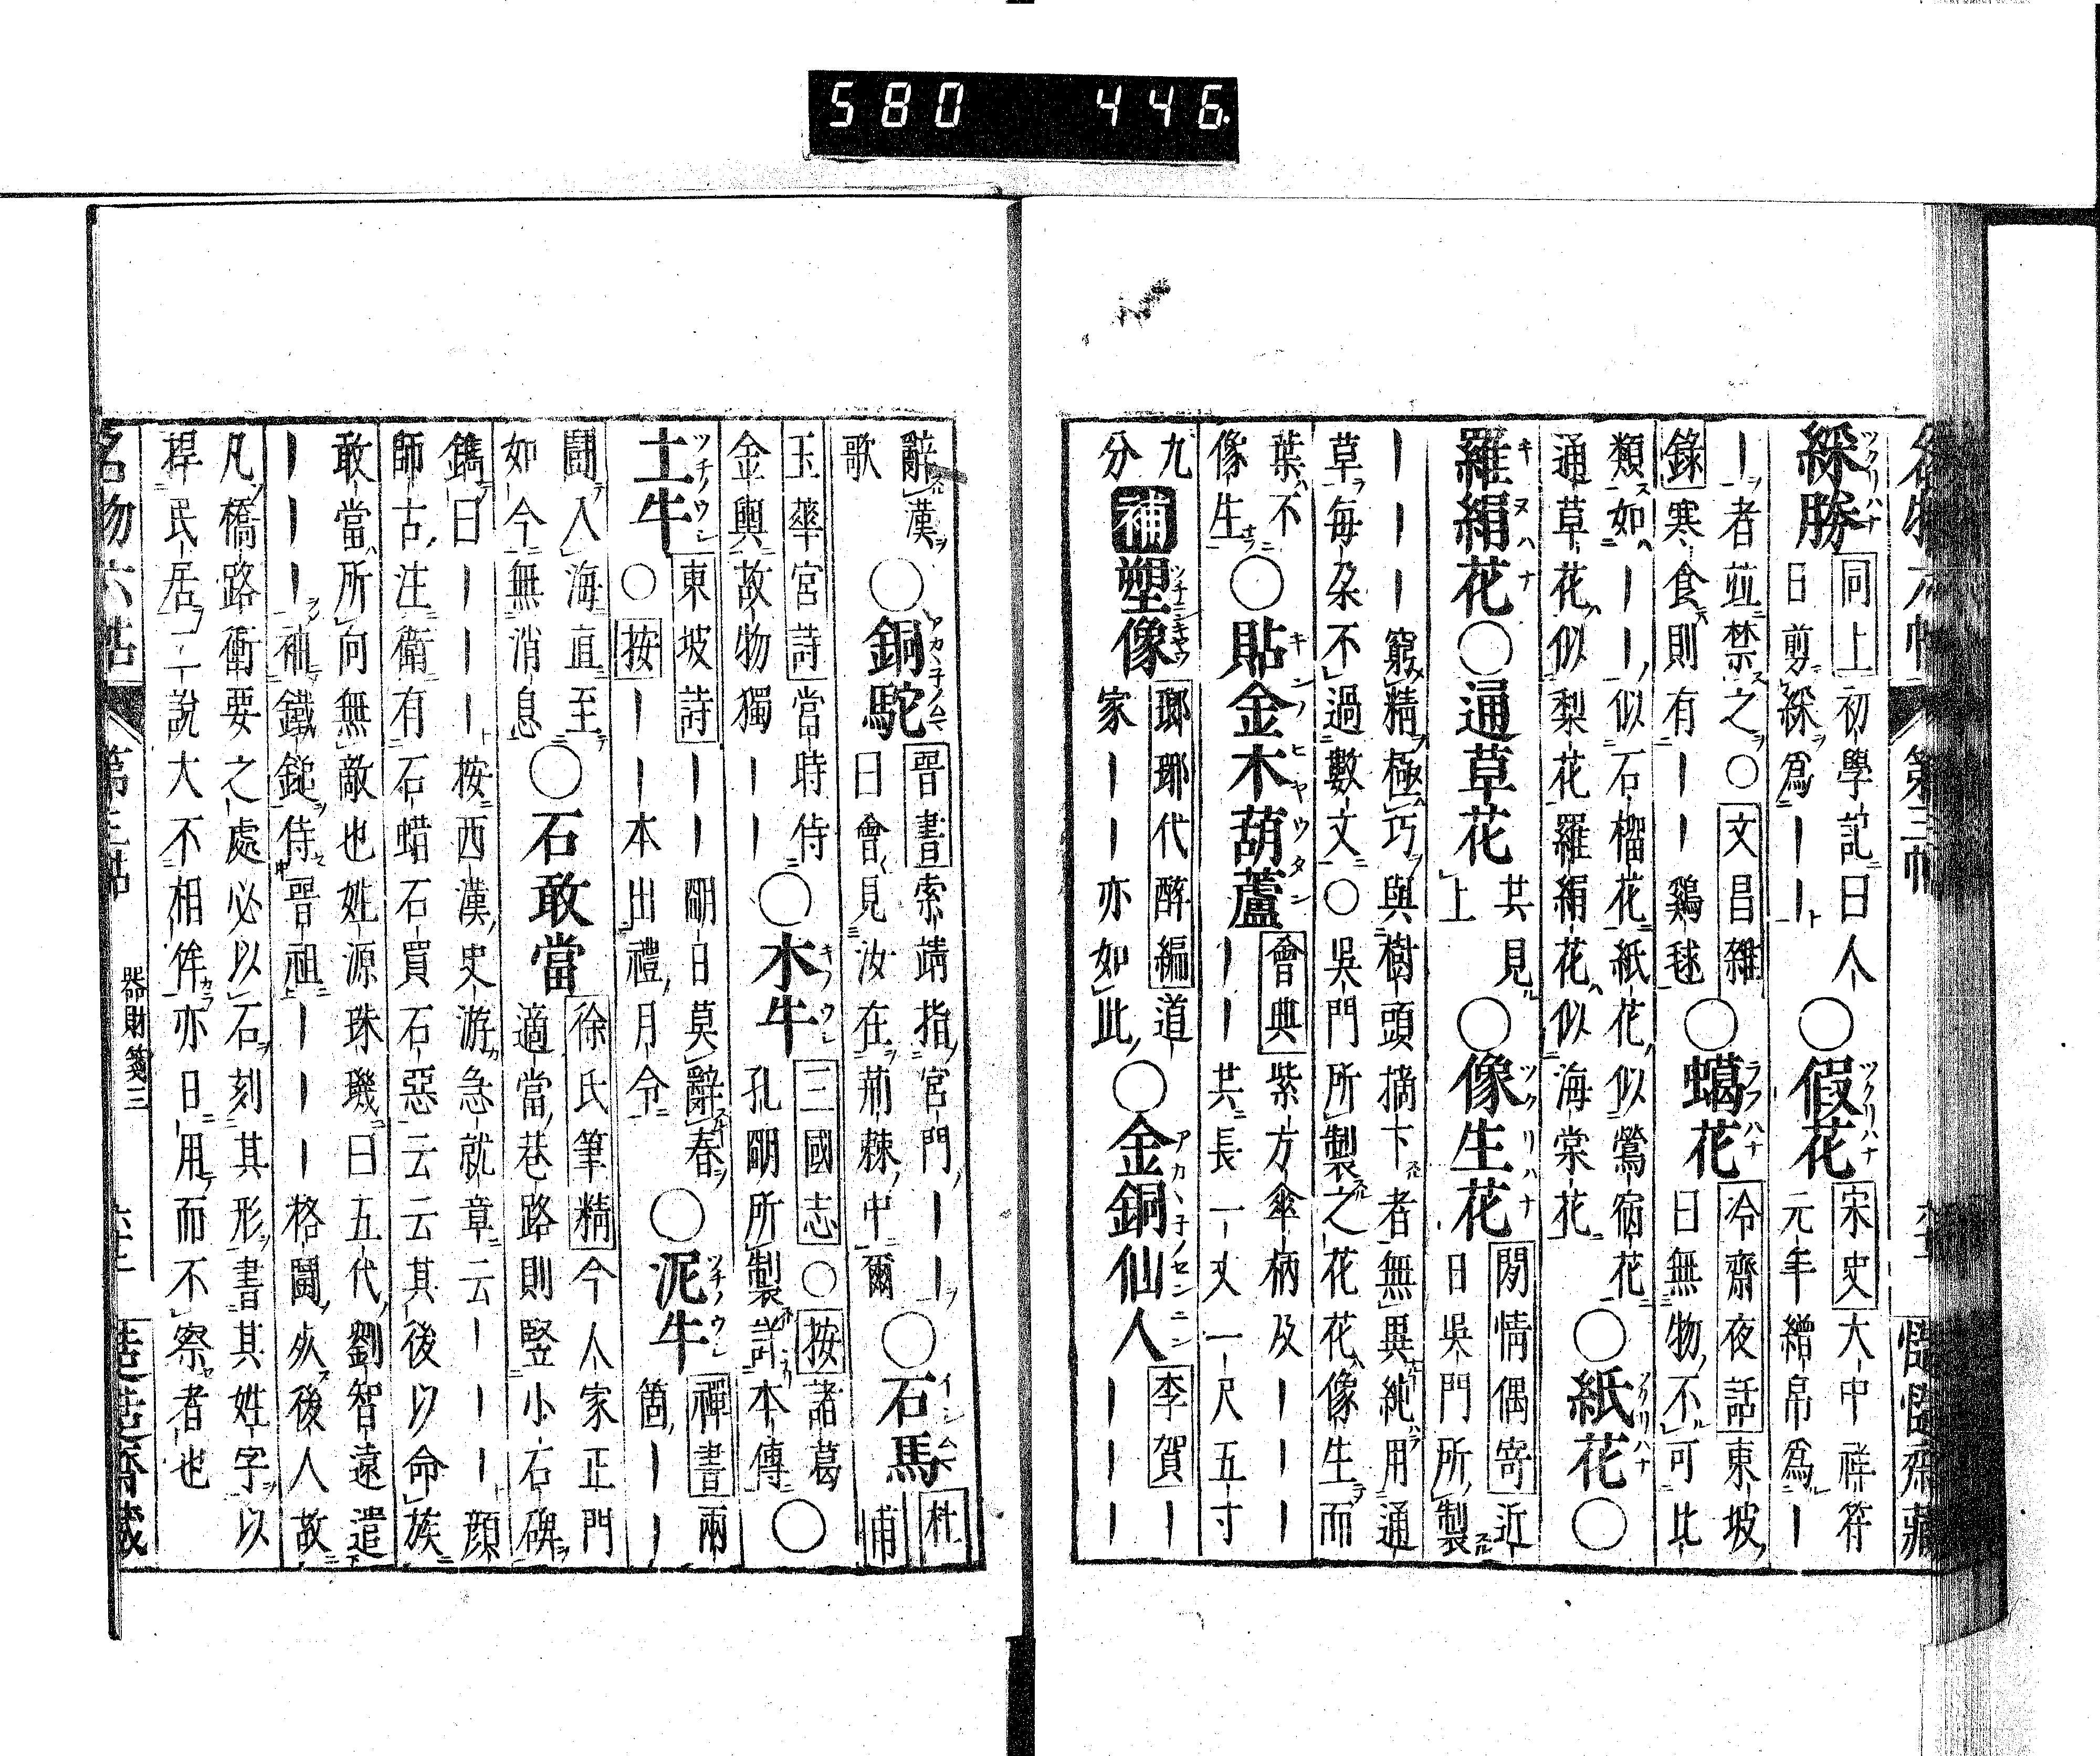 名物六帖 第三帖 慥慥齋藏
綵勝 同上 初學記曰人日剪綵爲｜｜ ○假花 宋史 大中祥符元年繒帛爲｜
｜者並禁之○文昌雜錄 寒食則有｜｜鷄毬 ○蠟花 冷齋夜話 東坡曰無物不可比
類如｜｜似石榴花紙花似鶯宿花通草花似梨花羅絹花似海棠花 ○紙花 ○
羅絹花 ○通草花 共見上 ○像生花 閒情偶寄 近日吳門所製
｜｜｜窮精極巧與樹頭摘下者無異純用通草每朶不過數文○吳門所製之花花像生而
葉不像生 ○貼金木葫蘆 會典 紫方傘柄及｜｜｜｜｜共長一丈一尺五寸
九分 補 塑像 瑯瑘代醉編 道家｜｜亦如此 ○金銅仙人 李賀 ｜｜｜｜
辭漢歌 ○銅駝 晉書 索靖指宮門｜｜曰會見汝在荊棘中爾 ○石馬 杜甫
玉華宮詩 當時侍金輿故物獨｜｜ ○木牛 三國志 ○按諸葛孔明所製詳本傳 ○
土牛 東坡詩 ｜｜｜明日莫辭春○按｜｜本出禮月令 ○泥牛 禪書 兩箇｜｜
鬪入海直至如今無消息 ○石敢當 徐氏筆精 今人家正門適當巷路則竪小石碑
鐫曰｜｜｜｜按西漢史游急就章云｜｜｜顔師古注衛有石蜡石買石惡云云其後以命族
敢當所向無敵也姓源珠璣曰五代劉智遠遣｜｜｜袖鐵鎚侍晉祖｜｜｜格鬪死後人故
凡橋路衝要之處必以石刻其形書其姓字以捍民居二說大不相侔亦日用而不察者也
名物六帖 第三帖 器財箋三
580 446